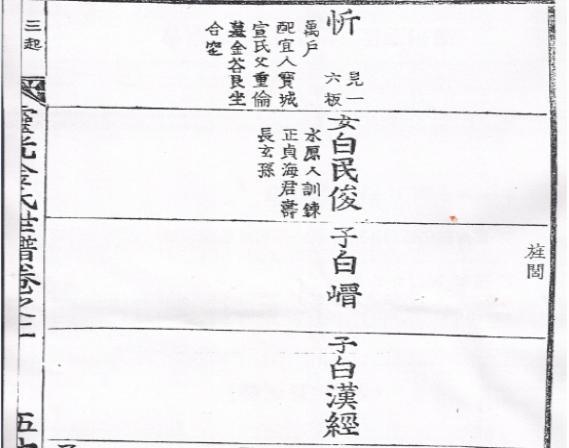 旌閭
忻
見一
六板
萬戶
配宜人寶城
宣氏父重倫
墓金谷艮坐
合窆
女白民俊
水原人訓鍊
正貞海君壽
長玄孫
子白
子白漢經
三起
光金氏世譜卷之
五